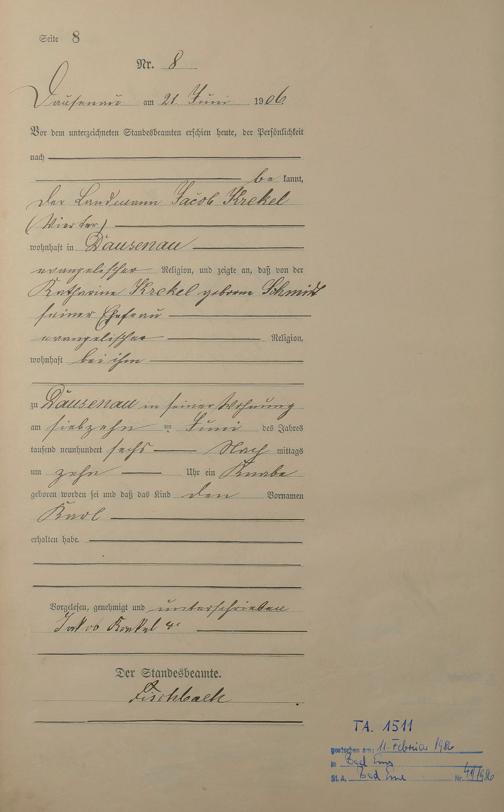 Seite 8
Nr. 8
Dausenau am 21 Juni 1906
Vor dem unterzeichneten Standesbeamten erschien heute, der Persönlichkeit
nach
be kannt,
der Landmann Jacob Krekel
(Vierter)
wohnhaft in Dausenau
evangelischer Religion, und zeigte an, daß von der
Katharine Krekel geborne Schmidt
seiner Ehefrau
evangelischer Religion,
wohnhaft bei ihm
zu Dausenau in seiner Wohnung
am siebzehn ten Juni des Jahres
tausend neunhundert sechs Nach mittags
um zehn Uhr ein Knabe
geboren worden sei und daß das Kind den Vornamen
Karl
erhalten habe.
Vorgelesen, genehmigt und unterschrieben
Jakob Krekel 4r
Der Standesbeamte.
Fischbach
T.A. 1511
gestorben am: 11. Februar 1986
in Bad Ems
St.A. Bad Ems Nr. /1986